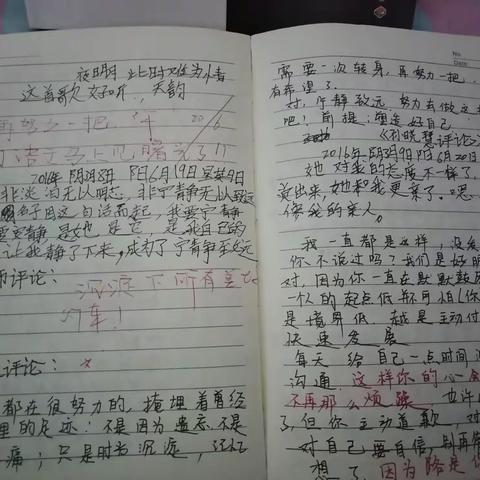 夜明 此时难为情
这首歌好听,天韵
再努力一把
20 6
2016年 阴 3月8日 阳6月19日 星期日
非淡泊无以明志,非宁静无以致远
因这句话而起,我要宁静
要安静 是她 是它,是我自己的
让我静了下来,成为了宁静至远
师评论:
沉淀下所有
评论:
都在很努力的,掩埋着曾经
里的足迹;不是因为遗忘,不是
痛;只是时光沉淀,
No
Date
需要一次转身,再努力一把,
有希望了
对,宁静致远,努力去做
吧!前提:塑造好自己
《刘晓慧评论》
2016年 阴3月9日 阳6月20日
她对我的态度不一样了,
说出来,她把我更亲了。嗯
像我的亲人。
我一直都是这样,没
你不说过吗?我们是好朋
对,因为你一直在默默鼓
一个人的起点低并不可怕(你
是境界低.越是主动付
快速发展
每天给自己一点时间
沟通.这样你的心会
不再那么烦躁,也许
了,但你主动道歉,对
对自己要自信,别再
想了,因为路是你